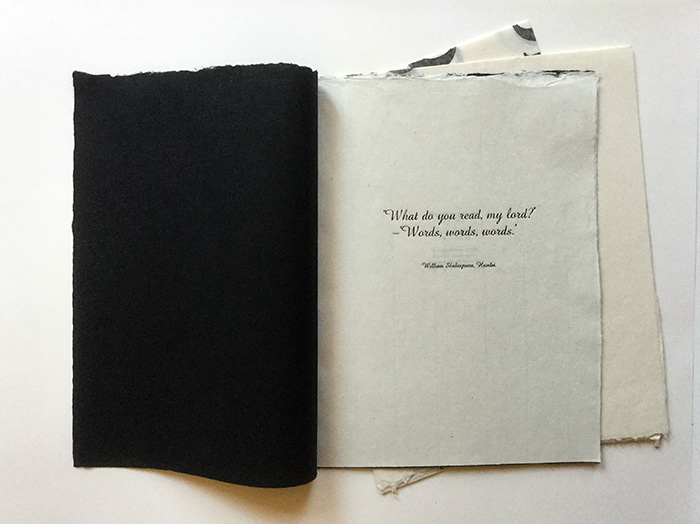 "What do you read, my lord?"
– "Words, words, words."
William Shakespeare, Hamlet